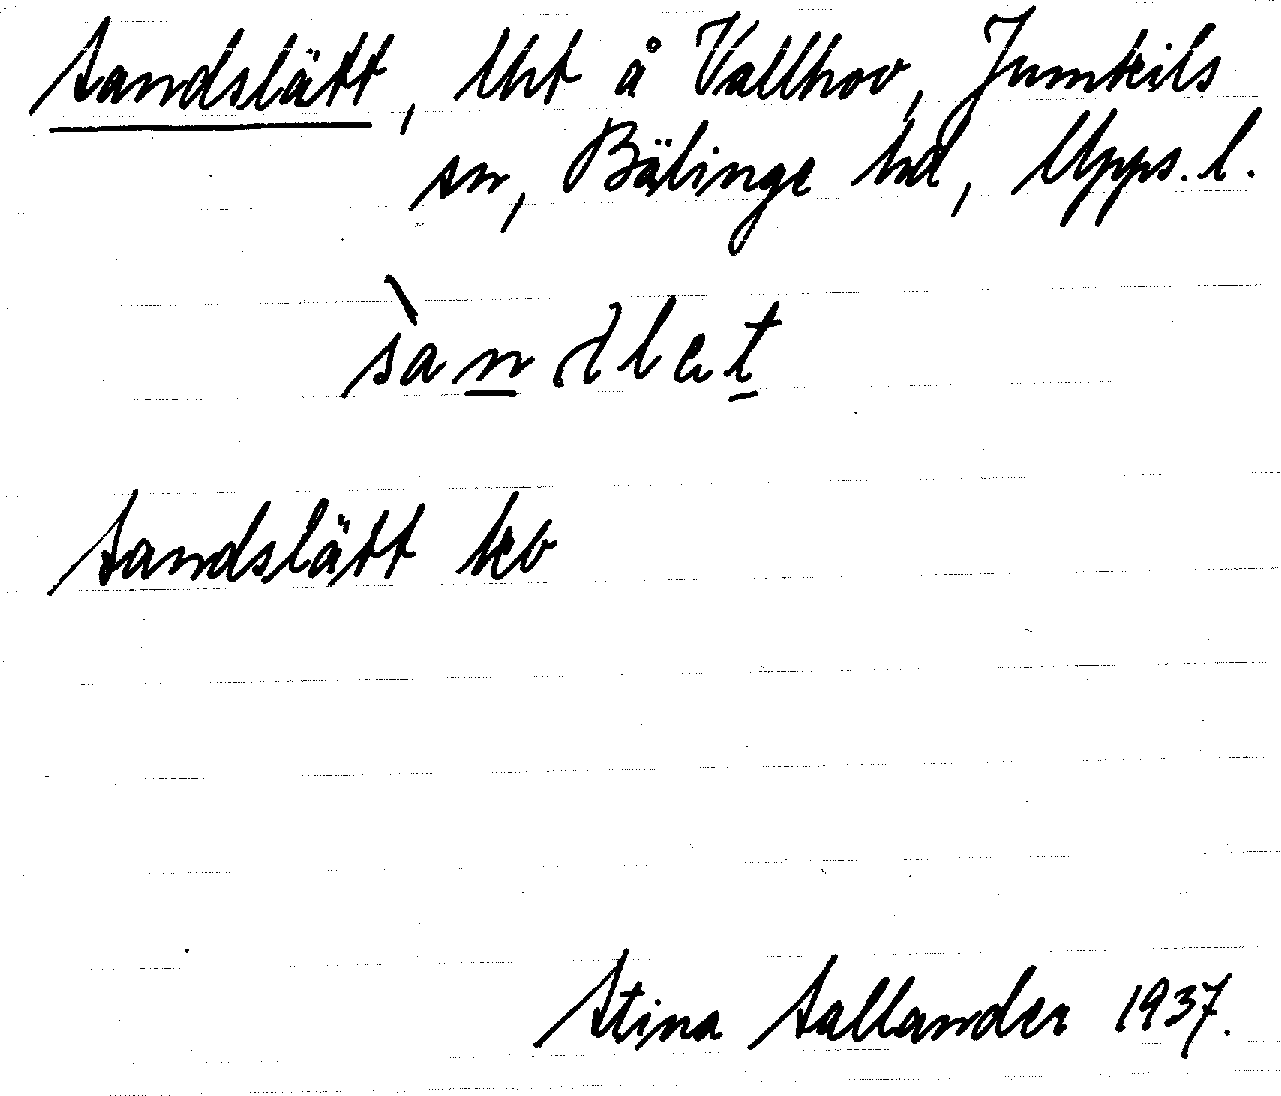 Sandslätt, Uht å Vallhov, Jumkils
sn, Bälinge hd, Upps. l.
Sandslätt kb
Stina Sallander 1937.